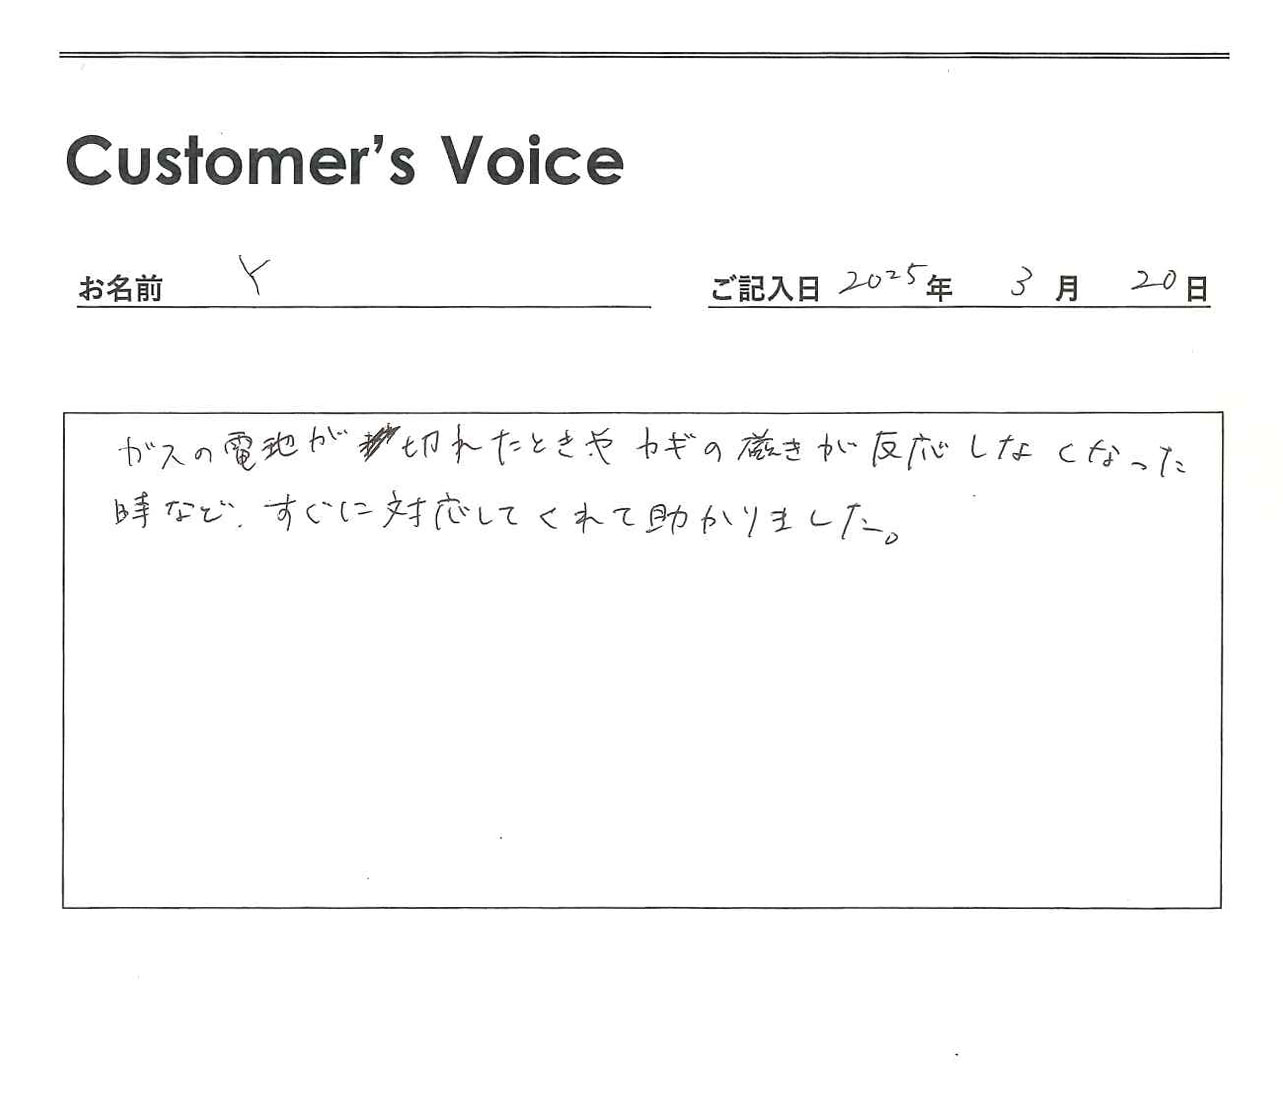 Customer's Voice
お名前 Y
ご記入日 2025年 3月 20日
ガスの電池が切れたときや カギの磁きが反応しなくなった
時など、すぐに対応してくれて助かりました。